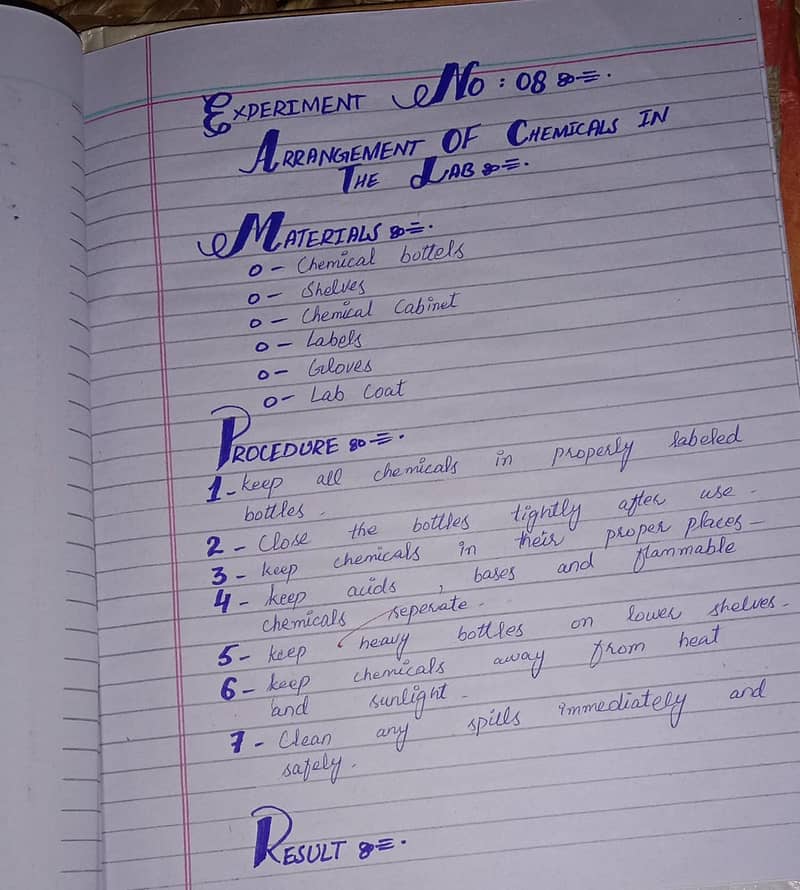 EXPERIMENT NO : 08 :-
ARRANGEMENT OF CHEMICALS IN
THE LAB :-
MATERIALS :-
o - Chemical bottels
o - Shelves
o - Chemical Cabinet
o - Labels
o - Gloves
o - Lab Coat
PROCEDURE :-
1 - keep all chemicals in properly labeled
bottles .
2 - Close the bottles tightly after use .
3 - keep chemicals in their proper places -
4 - keep acids , bases and flammable
chemicals seperate .
5 - keep heavy bottles on lower shelves .
6 - keep chemicals away from heat
and sunlight .
7 - Clean any spills immediately and
safely .
RESULT :-